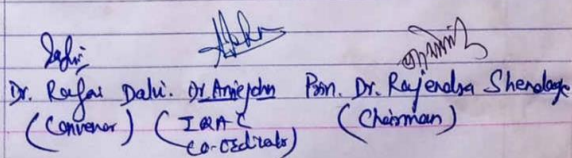 Dr. Rafai Dalvi. Dr. Amie John Prin. Dr. Rajendra Shendage
(Convenor) (IQAC (Chairman)
Co-ordinator)